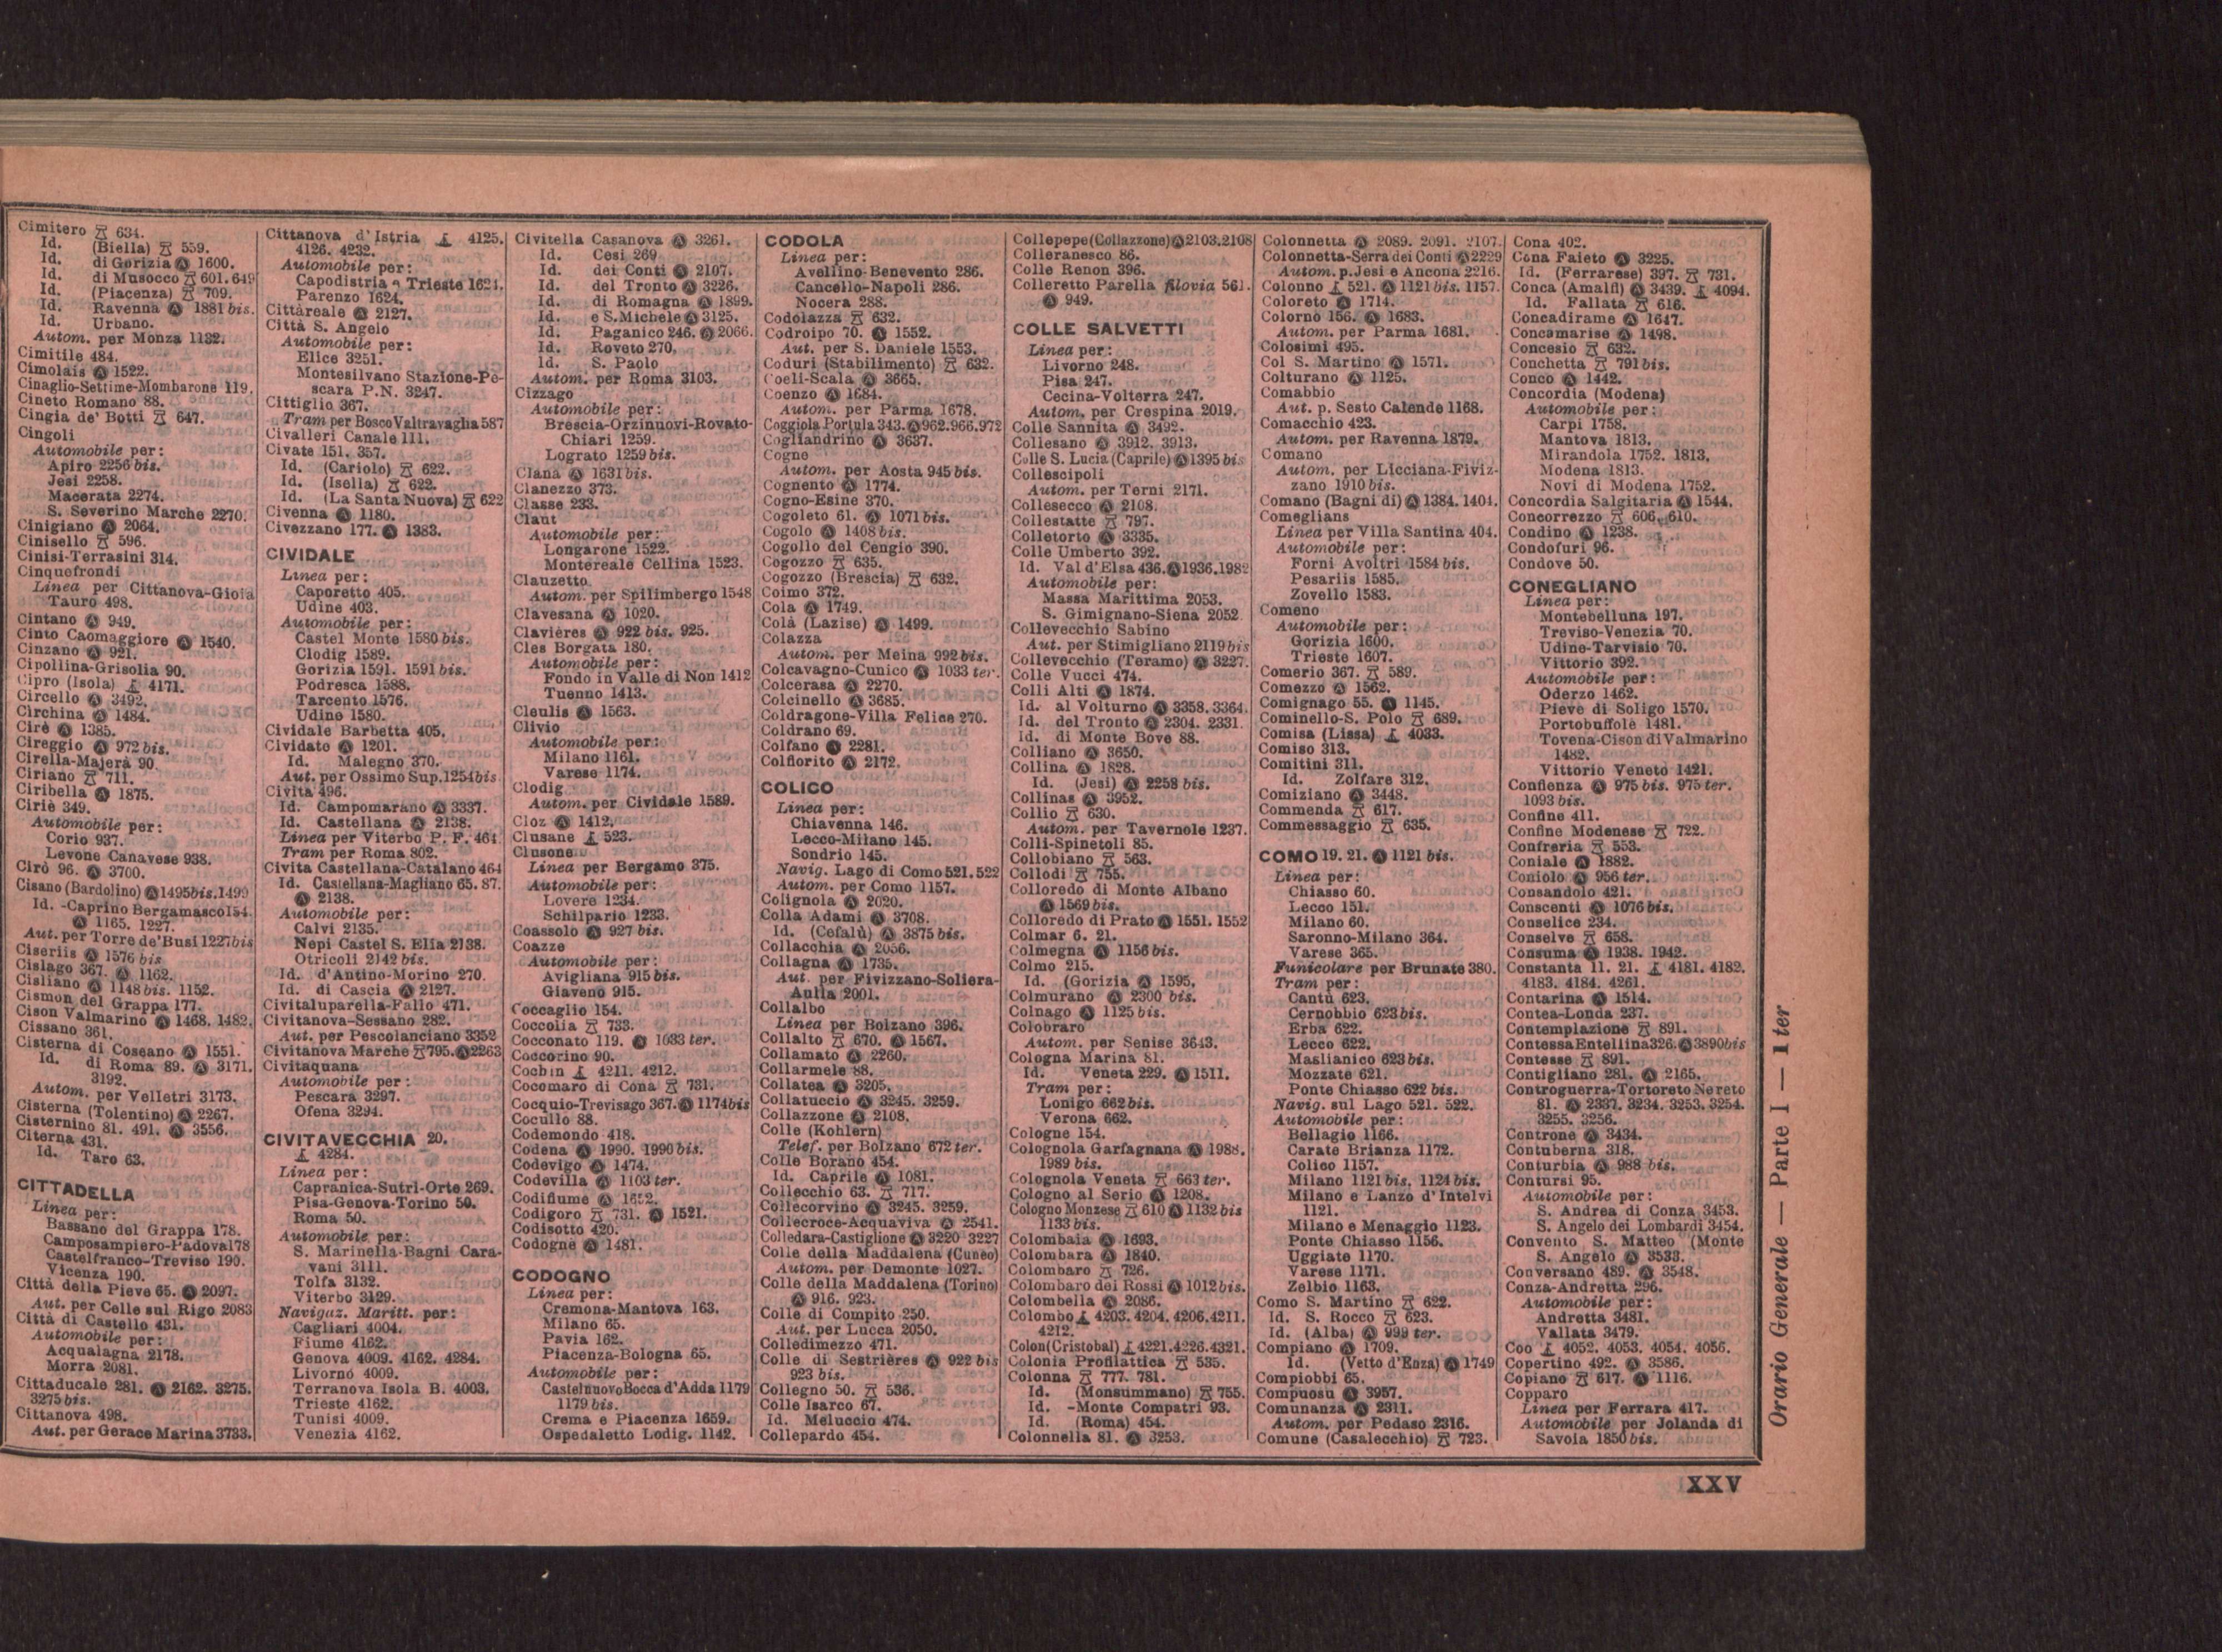 Cimitero 634.
Id. (Biella) 559.
Id. di Gorizia Ⓐ 1600.
Id. di Musocco 601. 649
Id. (Piacenza) 709.
Id. Ravenna Ⓐ 1881 bis.
Id. Urbano.
Autom. per Monza 1132.
Cimitile 484.
Cimolais Ⓐ 1522.
Cinaglio-Settime-Mombarone 119.
Cineto Romano 88.
Cingia de' Botti 647.
Cingoli
Automobile per:
Apiro 2256 bis.
Jesi 2258.
Macerata 2274.
S. Severino Marche 2270.
Cinigiano Ⓐ 2064.
Cinisello 596.
Cinisi-Terrasini 314.
Cinquefrondi
Linea per Cittanova-Gioia
Tauro 498.
Cintano Ⓐ 949.
Cinto Caomaggiore Ⓐ 1540.
Cinzano Ⓐ 921.
Cipollina-Grisolia 90.
Cipro (Isola) 4171.
Circello Ⓐ 3492.
Circhina Ⓐ 1484.
Cirè Ⓐ 1385.
Cireggio Ⓐ 972 bis.
Cirella-Majerà 90.
Ciriano 711.
Ciribella Ⓐ 1875.
Ciriè 349.
Automobile per:
Corio 937.
Levone Canavese 938.
Cirò 96. Ⓐ 3700.
Cisano (Bardolino) Ⓐ 1495 bis. 1499
Id. -Caprino Bergamasco 154.
Ⓐ 1165. 1227.
Aut. per Torre de' Busi 1227 bis
Ciseriis Ⓐ 1576 bis
Cislago 367. Ⓐ 1162.
Cisliano Ⓐ 1148 bis. 1152.
Cismon del Grappa 177.
Cison Valmarino Ⓐ 1468. 1482.
Cissano 361.
Cisterna di Coseano Ⓐ 1551.
Id. di Roma 89. Ⓐ 3171.
3192.
Autom. per Velletri 3173.
Cisterna (Tolentino) Ⓐ 2267.
Cisternino 81. 491. Ⓐ 3556.
Citerna 431.
Id. Taro 63.
CITTADELLA
Linea per:
Bassano del Grappa 178.
Camposampiero-Padova 178
Castelfranco-Treviso 190.
Vicenza 190.
Città della Pieve 65. Ⓐ 2097.
Aut. per Celle sul Rigo 2083
Città di Castello 431.
Automobile per:
Acqualagna 2178.
Morra 2081.
Cittaducale 281. Ⓐ 2162. 3275.
3275 bis.
Cittanova 498.
Aut. per Gerace Marina 3733.
Cittanova d'Istria 4125.
4126. 4232.
Automobile per:
Capodistria e Trieste 1624.
Parenzo 1624.
Cittàreale Ⓐ 2127.
Città S. Angelo
Automobile per:
Elice 3251.
Montesilvano Stazione-Pe-
scara P.N. 3247.
Cittiglio 367.
Tram per Bosco Valtravaglia 587
Civalleri Canale 111.
Civate 151. 357.
Id. (Cariolo) 622.
Id. (Isella) 622.
Id. (La Santa Nuova) 622
Civenna Ⓐ 1180.
Civezzano 177. Ⓐ 1383.
CIVIDALE
Linea per:
Caporetto 405.
Udine 403.
Automobile per:
Castel Monte 1580 bis.
Clodig 1589.
Gorizia 1591. 1591 bis.
Podresca 1588.
Tarcento 1576.
Udine 1580.
Cividale Barbetta 405.
Cividate Ⓐ 1201.
Id. Malegno 370.
Aut. per Ossimo Sup. 1254 bis
Civita 496.
Id. Campomarano Ⓐ 3337.
Id. Castellana Ⓐ 2138.
Linea per Viterbo P. F. 464.
Tram per Roma 802.
Civita Castellana-Catalano 464
Id. Castellana-Magliano 65. 87.
Ⓐ 2138.
Automobile per:
Calvi 2135.
Nepi Castel S. Elia 2138.
Otricoli 2142 bis.
Id. d'Antino-Morino 270.
Id. di Cascia Ⓐ 2127.
Civitaluparella-Fallo 471.
Civitanova-Sessano 282.
Aut. per Pescolanciano 3352
Civitanova Marche 795. Ⓐ 2263
Civitaquana
Automobile per:
Pescara 3297.
Ofena 3294.
CIVITAVECCHIA 20.
4284.
Linea per:
Capranica-Sutri-Orte 269.
Pisa-Genova-Torino 50.
Roma 50.
Automobile per:
S. Marinella-Bagni Cara-
vani 3111.
Tolfa 3132.
Viterbo 3129.
Navigaz. Maritt. per:
Cagliari 4004.
Fiume 4162.
Genova 4009. 4162. 4284.
Livorno 4009.
Terranova Isola B. 4003.
Trieste 4162.
Tunisi 4009.
Venezia 4162.
Civitella Casanova Ⓐ 3261.
Id. Cesi 269
Id. dei Conti Ⓐ 2107.
Id. del Tronto Ⓐ 3226.
Id. di Romagna Ⓐ 1899.
Id. e S. Michele Ⓐ 3125.
Id. Paganico 246. Ⓐ 2066.
Id. Roveto 270.
Id. S. Paolo
Autom. per Roma 3103.
Cizzago
Automobile per:
Brescia-Orzinuovi-Rovato-
Chiari 1259.
Lograto 1259 bis.
Clana Ⓐ 1631 bis.
Clanezzo 373.
Classe 233.
Claut
Automobile per:
Longarone 1522.
Montereale Cellina 1523.
Clauzetto
Autom. per Spilimbergo 1548
Clavesana Ⓐ 1020.
Clavières Ⓐ 922 bis. 925.
Cles Borgata 180.
Automobile per:
Fondo in Valle di Non 1412
Tuenno 1413.
Cleulis Ⓐ 1563.
Clivio
Automobile per:
Milano 1161.
Varese 1174.
Clodig
Autom. per Cividale 1589.
Cloz Ⓐ 1412.
Clusane 523.
Clusone
Linea per Bergamo 375.
Automobile per:
Lovere 1234.
Schilpario 1233.
Coassolo Ⓐ 927 bis.
Coazze
Automobile per:
Avigliana 915 bis.
Giaveno 915.
Coccaglio 154.
Coccolia 733.
Cocconato 119. Ⓐ 1033 ter.
Coccorino 90.
Cochin 4211. 4212.
Cocomaro di Cona 731.
Cocquio-Trevisago 367. Ⓐ 1174 bis
Cocullo 88.
Codemondo 418.
Codena Ⓐ 1990. 1990 bis.
Codevigo Ⓐ 1474.
Codevilla Ⓐ 1103 ter.
Codifiume Ⓐ 1652.
Codigoro 731. Ⓐ 1521.
Codisotto 420.
Codognè Ⓐ 1481.
CODOGNO
Linea per:
Cremona-Mantova 163.
Milano 65.
Pavia 162.
Piacenza-Bologna 65.
Automobile per:
Castelnuovo Bocca d'Adda 1179
1179 bis.
Crema e Piacenza 1659.
Ospedaletto Lodig. 1142.
CODOLA
Linea per:
Avellino-Benevento 286.
Cancello-Napoli 286.
Nocera 288.
Codolazza 632.
Codroipo 70. Ⓐ 1552.
Aut. per S. Daniele 1553.
Coduri (Stabilimento) 632.
Coeli-Scala Ⓐ 3665.
Coenzo Ⓐ 1684.
Autom. per Parma 1678.
Coggiola Portula 343. Ⓐ 962. 966. 972
Cogliandrino Ⓐ 3637.
Cogne
Autom. per Aosta 945 bis.
Cognento Ⓐ 1774.
Cogno-Esine 370.
Cogoleto 61. Ⓐ 1071 bis.
Cogolo Ⓐ 1408 bis.
Cogollo del Cengio 390.
Cogozzo 635.
Cogozzo (Brescia) 632.
Coimo 372.
Cola Ⓐ 1749.
Colà (Lazise) Ⓐ 1499.
Colazza
Autom. per Meina 992 bis.
Colcavagno-Cunico Ⓐ 1033 ter.
Colcerasa Ⓐ 2270.
Colcinello Ⓐ 3685.
Coldragone-Villa Felice 270.
Coldrano 69.
Colfano Ⓐ 2281.
Colfiorito Ⓐ 2172.
COLICO
Linea per:
Chiavenna 146.
Lecco-Milano 145.
Sondrio 145.
Navig. Lago di Como 521. 522
Autom. per Como 1157.
Colignola Ⓐ 2020.
Colla Adami Ⓐ 3708.
Id. (Cefalù) Ⓐ 3875 bis.
Collacchia Ⓐ 2056.
Collagna Ⓐ 1735.
Aut. per Fivizzano-Soliera-
Aulla 2001.
Collalbo
Linea per Bolzano 396.
Collalto 670. Ⓐ 1567.
Collamato Ⓐ 2260.
Collarmele 88.
Collatea Ⓐ 3205.
Collatuccio Ⓐ 3245. 3259.
Collazzone Ⓐ 2108.
Colle (Kohlern)
Telef. per Bolzano 672 ter.
Colle Borano 454.
Id. Caprile Ⓐ 1081.
Collecchio 63. 717.
Collecorvino Ⓐ 3245. 3259.
Collecroce-Acquaviva Ⓐ 2541.
Colledara-Castiglione Ⓐ 3220 3227
Colle della Maddalena (Cuneo)
Autom. per Demonte 1027.
Colle della Maddalena (Torino)
Ⓐ 916. 923.
Colle di Compito 250.
Aut. per Lucca 2050.
Colledimezzo 471.
Colle di Sestrières Ⓐ 922 bis
923 bis.
Collegno 50. 536.
Colle Isarco 67.
Id. Meluccio 474.
Collepardo 454.
Collepepe (Collazzone) Ⓐ 2103. 2108
Colleranesco 86.
Colle Renon 396.
Colleretto Parella filovia 561.
Ⓐ 949.
COLLE SALVETTI
Linea per:
Livorno 248.
Pisa 247.
Cecina-Volterra 247.
Autom. per Crespina 2019.
Colle Sannita Ⓐ 3492.
Collesano Ⓐ 3912. 3913.
Colle S. Lucia (Caprile) Ⓐ 1395 bis
Collescipoli
Autom. per Terni 2171.
Collesecco Ⓐ 2108.
Collestatte 797.
Colletorto Ⓐ 3335.
Colle Umberto 392.
Id. Val d'Elsa 436. Ⓐ 1936. 1982
Automobile per:
Massa Marittima 2053.
S. Gimignano-Siena 2052
Collevecchio Sabino
Aut. per Stimigliano 2119 bis
Collevecchio (Teramo) Ⓐ 3227.
Colle Vucci 474.
Colli Alti Ⓐ 1874.
Id. al Volturno Ⓐ 3358. 3364.
Id. del Tronto Ⓐ 2304. 2331.
Id. di Monte Bove 88.
Colliano Ⓐ 3650.
Collina Ⓐ 1828.
Id. (Jesi) Ⓐ 2258 bis.
Collinas Ⓐ 3952.
Collio 630.
Autom. per Tavernole 1237.
Colli-Spinetoli 85.
Collobiano 563.
Collodi 755.
Colloredo di Monte Albano
Ⓐ 1569 bis.
Colloredo di Prato Ⓐ 1551. 1552
Colmar 6. 21.
Colmegna Ⓐ 1156 bis.
Colmo 215.
Id. (Gorizia Ⓐ 1595.
Colmurano Ⓐ 2300 bis.
Colnago Ⓐ 1125 bis.
Colobraro
Autom. per Senise 3643.
Cologna Marina 81.
Id. Veneta 229. Ⓐ 1511.
Tram per:
Lonigo 662 bis.
Verona 662.
Cologne 154.
Colognola Garfagnana Ⓐ 1988.
1989 bis.
Colognola Veneta 663 ter.
Cologno al Serio Ⓐ 1208.
Cologno Monzese 610 Ⓐ 1132 bis
1133 bis.
Colombaia Ⓐ 1693.
Colombara Ⓐ 1840.
Colombaro 726.
Colombaro dei Rossi Ⓐ 1012 bis.
Colombella Ⓐ 2086.
Colombo 4203. 4204. 4206. 4211.
4212.
Colon (Cristobal) 4221. 4226. 4321.
Colonia Profilattica 535.
Colonna 777. 781.
Id. (Monsummano) 755.
Id. -Monte Compatri 93.
Id. (Roma) 454.
Colonnella 81. Ⓐ 3253.
Colonnetta Ⓐ 2089. 2091. 2107.
Colonnetta-Serra dei Conti Ⓐ 2229
Autom. p. Jesi e Ancona 2216.
Colonno 521. Ⓐ 1121 bis. 1157.
Coloreto Ⓐ 1714.
Colorno 156. Ⓐ 1683.
Autom. per Parma 1681.
Colosimi 495.
Col S. Martino Ⓐ 1571.
Colturano Ⓐ 1125.
Comabbio
Aut. p. Sesto Calende 1168.
Comacchio 423.
Autom. per Ravenna 1879.
Comano
Autom. per Licciana-Fiviz-
zano 1910 bis.
Comano (Bagni di) Ⓐ 1384. 1404.
Comeglians
Linea per Villa Santina 404.
Automobile per:
Forni Avoltri 1584 bis.
Pesariis 1585.
Zovello 1583.
Comeno
Automobile per:
Gorizia 1600.
Trieste 1607.
Comerio 367. 589.
Comezzo Ⓐ 1562.
Comignago 55. Ⓐ 1145.
Cominello-S. Polo 689.
Comisa (Lissa) 4033.
Comiso 313.
Comitini 311.
Id. Zolfare 312.
Comiziano Ⓐ 3448.
Commenda 617.
Commessaggio 635.
COMO 19. 21. Ⓐ 1121 bis.
Linea per:
Chiasso 60.
Lecco 151.
Milano 60.
Saronno-Milano 364.
Varese 365.
Funicolare per Brunate 380.
Tram per:
Cantù 623.
Cernobbio 623 bis.
Erba 622.
Lecco 622.
Maslianico 623 bis.
Mozzate 621.
Ponte Chiasso 622 bis.
Navig. sul Lago 521. 522.
Automobile per:
Bellagio 1166.
Carate Brianza 1172.
Colico 1157.
Milano 1121 bis. 1124 bis.
Milano e Lanzo d'Intelvi
1121.
Milano e Menaggio 1123.
Ponte Chiasso 1156.
Uggiate 1170.
Varese 1171.
Zelbio 1163.
Como S. Martino 622.
Id. S. Rocco 623.
Id. (Alba) Ⓐ 999 ter.
Compiano Ⓐ 1709.
Id. (Vetto d'Enza) Ⓐ 1749
Compiobbi 65.
Compuosu Ⓐ 3957.
Comunanza Ⓐ 2311.
Autom. per Pedaso 2316.
Comune (Casalecchio) 723.
Cona 402.
Cona Faieto Ⓐ 3225.
Id. (Ferrarese) 397. 731.
Conca (Amalfi) Ⓐ 3439. 4094.
Id. Fallata 616.
Concadirame Ⓐ 1647.
Concamarise Ⓐ 1498.
Concesio 632.
Conchetta 791 bis.
Conco Ⓐ 1442.
Concordia (Modena)
Automobile per:
Carpi 1758.
Mantova 1813.
Mirandola 1752. 1813.
Modena 1813.
Novi di Modena 1752.
Concordia Salgitaria Ⓐ 1544.
Concorrezzo 606. 610.
Condino Ⓐ 1238.
Condofuri 96.
Condove 50.
CONEGLIANO
Linea per:
Montebelluna 197.
Treviso-Venezia 70.
Udine-Tarvisio 70.
Vittorio 392.
Automobile per:
Oderzo 1462.
Pieve di Soligo 1570.
Portobuffolè 1481.
Tovena-Cison di Valmarino
1482.
Vittorio Veneto 1421.
Confienza Ⓐ 975 bis. 975 ter.
1093 bis.
Confine 411.
Confine Modenese 722.
Confreria 553.
Coniale Ⓐ 1882.
Coniolo Ⓐ 956 ter.
Consandolo 421.
Conscenti Ⓐ 1076 bis.
Conselice 234.
Conselve 658.
Consuma Ⓐ 1938. 1942.
Constanta 11. 21. 4181. 4182.
4183. 4184. 4261.
Contarina Ⓐ 1514.
Contea-Londa 237.
Contemplazione 891.
Contessa Entellina 326. Ⓐ 3890 bis
Contesse 891.
Contigliano 281. Ⓐ 2165.
Controguerra-Tortoreto Nereto
81. Ⓐ 2337. 3234. 3253. 3254.
3255. 3256.
Controne Ⓐ 3434.
Contuberna 318.
Conturbia Ⓐ 988 bis.
Contursi 95.
Automobile per:
S. Andrea di Conza 3453.
S. Angelo dei Lombardi 3454.
Convento S. Matteo (Monte
S. Angelo Ⓐ 3533.
Conversano 489. Ⓐ 3548.
Conza-Andretta 296.
Automobile per:
Andretta 3481.
Vallata 3479.
Coo 4052. 4053. 4054. 4056.
Copertino 492. Ⓐ 3586.
Copiano 617. Ⓐ 1116.
Copparo
Linea per Ferrara 417.
Automobile per Jolanda di
Savoia 1850 bis.
Orario Generale — Parte I — 1 ter
XXV